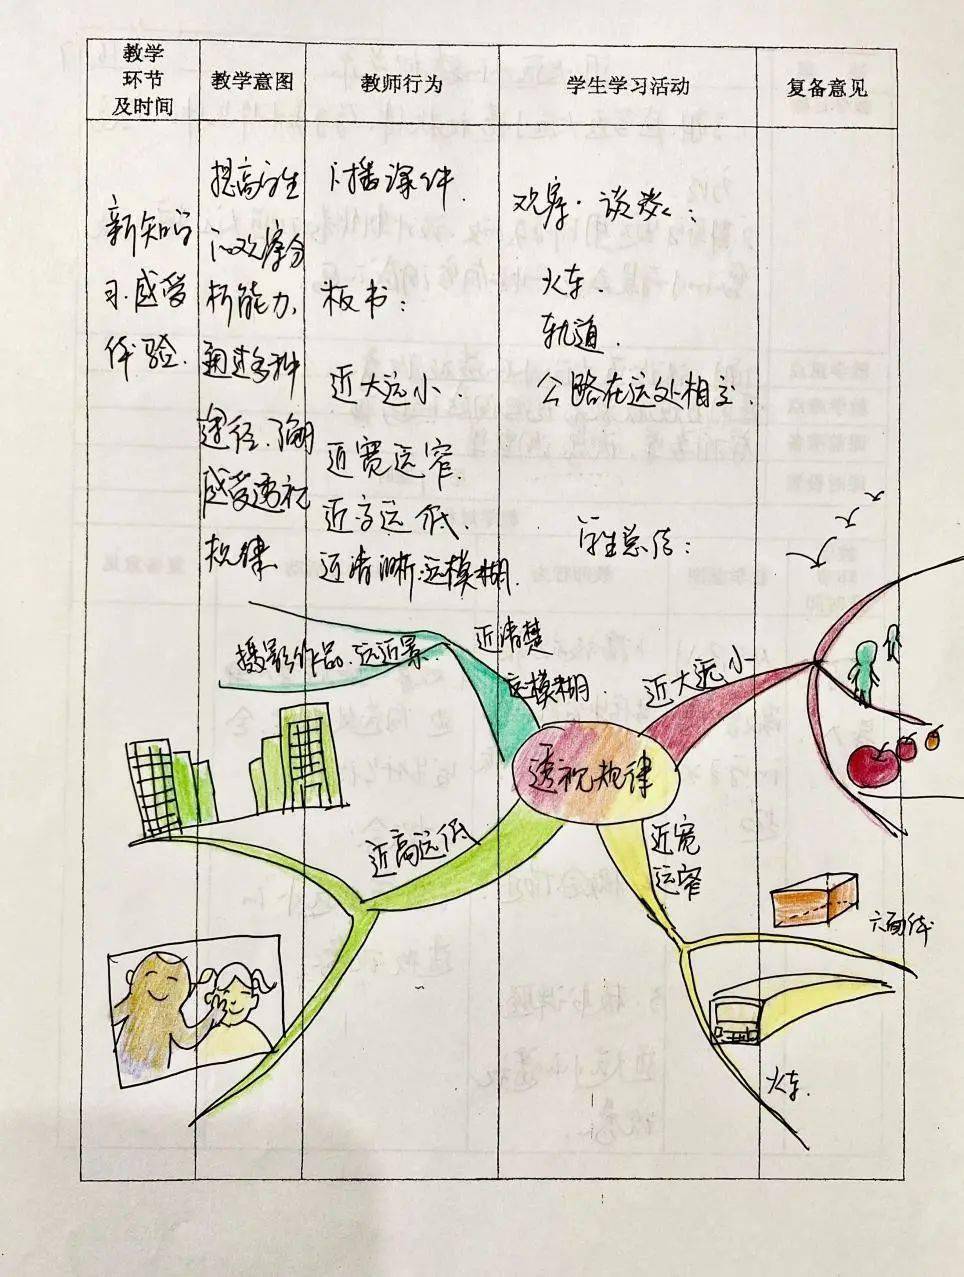 教学
环节
及时间
教学意图
教师行为
学生学习活动
复备意见
新知学
习·感受
体验.
提高学生
的观察分
析能力,
通过多种
途径.了解
感受透视
规律
1.播课件.
板书:
近大远小.
近宽远窄.
近高远低.
近清晰.远模糊.
观察·谈发:
火车.
轨道.
公路在远处相交.
学生总结:
摄影作品.远近景.
近清楚
远模糊.
近大远小
透视规律
近高远低
近宽
远窄
六面体
火车.